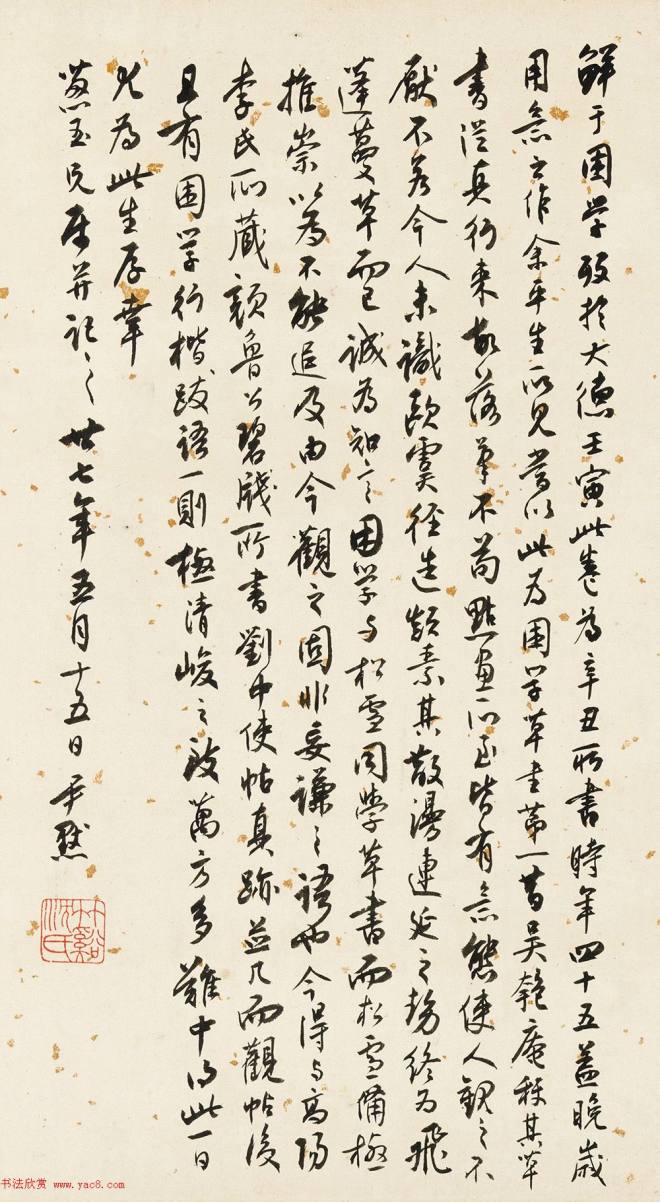 鲜于困学殁於大德壬寅此卷为辛丑所书时年四十五盖晚岁
用意之作余平生所见当以此为困学草书第一昔吴匏庵称其草
书从真行来故落笔不苟点画所至皆有意态使人观之不
厌不若今人未识欧虞径造颠素其散漫连延之势终为飞
蓬蔓草而已诚为知言困学与松雪同学草书而松雪备极
推崇以为不能追及由今观之固非妄谦之语也今得与高阳
李氏所藏颜鲁公碧笺所书刘中使帖真迹并几而观帖后
且有困学行楷跋语一则极清峻之致万方多难中得此一日
尤为此生厚幸
葱玉兄属并记之卅七年五月十五日尹默
竹溪沈氏
书法欣赏 www.yac8.com